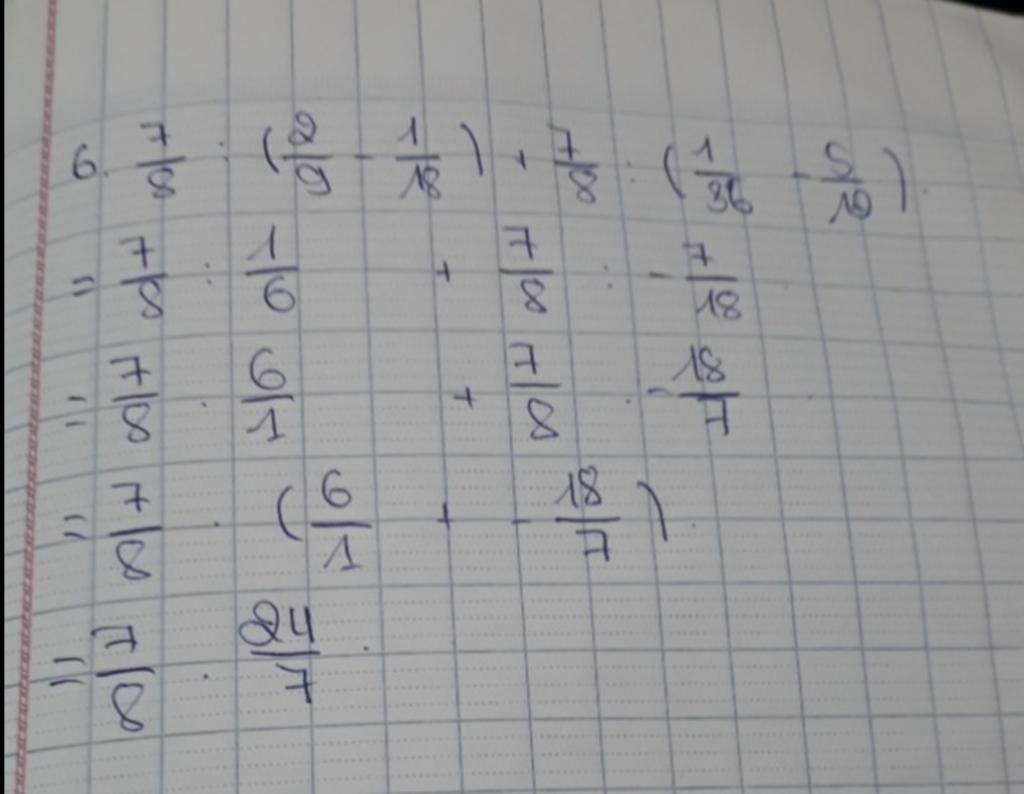 6. 7/8 : (2/9 - 1/18) + 7/8 : (1/36 - 5/12)
= 7/8 : 1/6 + 7/8 : - 7/18
= 7/8 . 6/1 + 7/8 . - 18/7
= 7/8 . (6/1 + - 18/7)
= 7/8 . 24/7